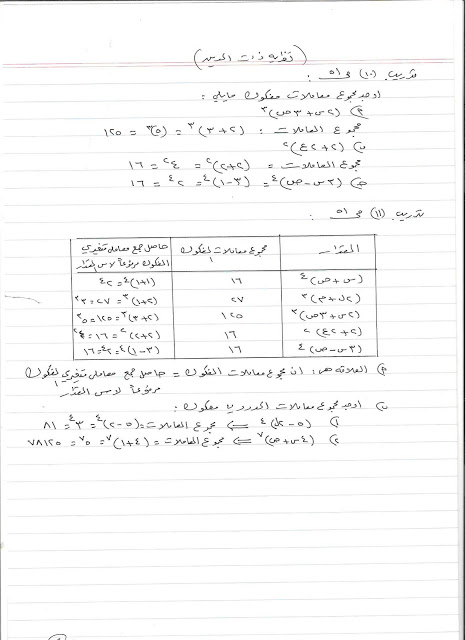 (نظرية ذات الحدين)
تدريب (١٠) ص ٥١ :
اوجد مجموع معاملات مفكوك مايلي :
أ) (٢س + ٣ص)٣
مجموع المعاملات : (٢+٣)٣ = (٥)٣ = ١٢٥
ب) (٢+٢ع)٢
مجموع المعاملات = (٢+٢)٢ = ٤٢ = ١٦
ج) (٣س - ص)٤ = (٣-١)٤ = ٢٤ = ١٦
تدريب (١١) ص ٥١ :
المقدار | مجموع معاملات المفكوك | حاصل جمع معاملي متغيري المفكوك مرفوعاً لاس المقدار
(س + ص)٤ | ١٦ | (١+١)٤ = ٢٤
(٢ل + م)٣ | ٢٧ | (٢+١)٣ = ٢٧ = ٣٣
(٢س + ٣ص)٣ | ١٢٥ | (٢+٣)٣ = ١٢٥ = ٥٣
(٢+٢ع)٢ | ١٦ | (٢+٢)٢ = ١٦ = ٤٢
(٣س - ص)٤ | ١٦ | (٣-١)٤ = ٢٤ = ١٦
أ) العلاقة هي : ان مجموع معاملات المفكوك = حاصل جمع معاملي متغيري المفكوك
مرفوعاً لاس المقدار
ب) اوجد مجموع معاملات الحدود مفكوك :
١) (٥ - ٢ل)٤ ⇐ مجموع المعاملات = (٥-٢)٤ = ٣٤ = ٨١
٢) (٤س + ص)٧ ⇐ مجموع المعاملات = (٤+١)٧ = ٥٧ = ٧٨١٢٥